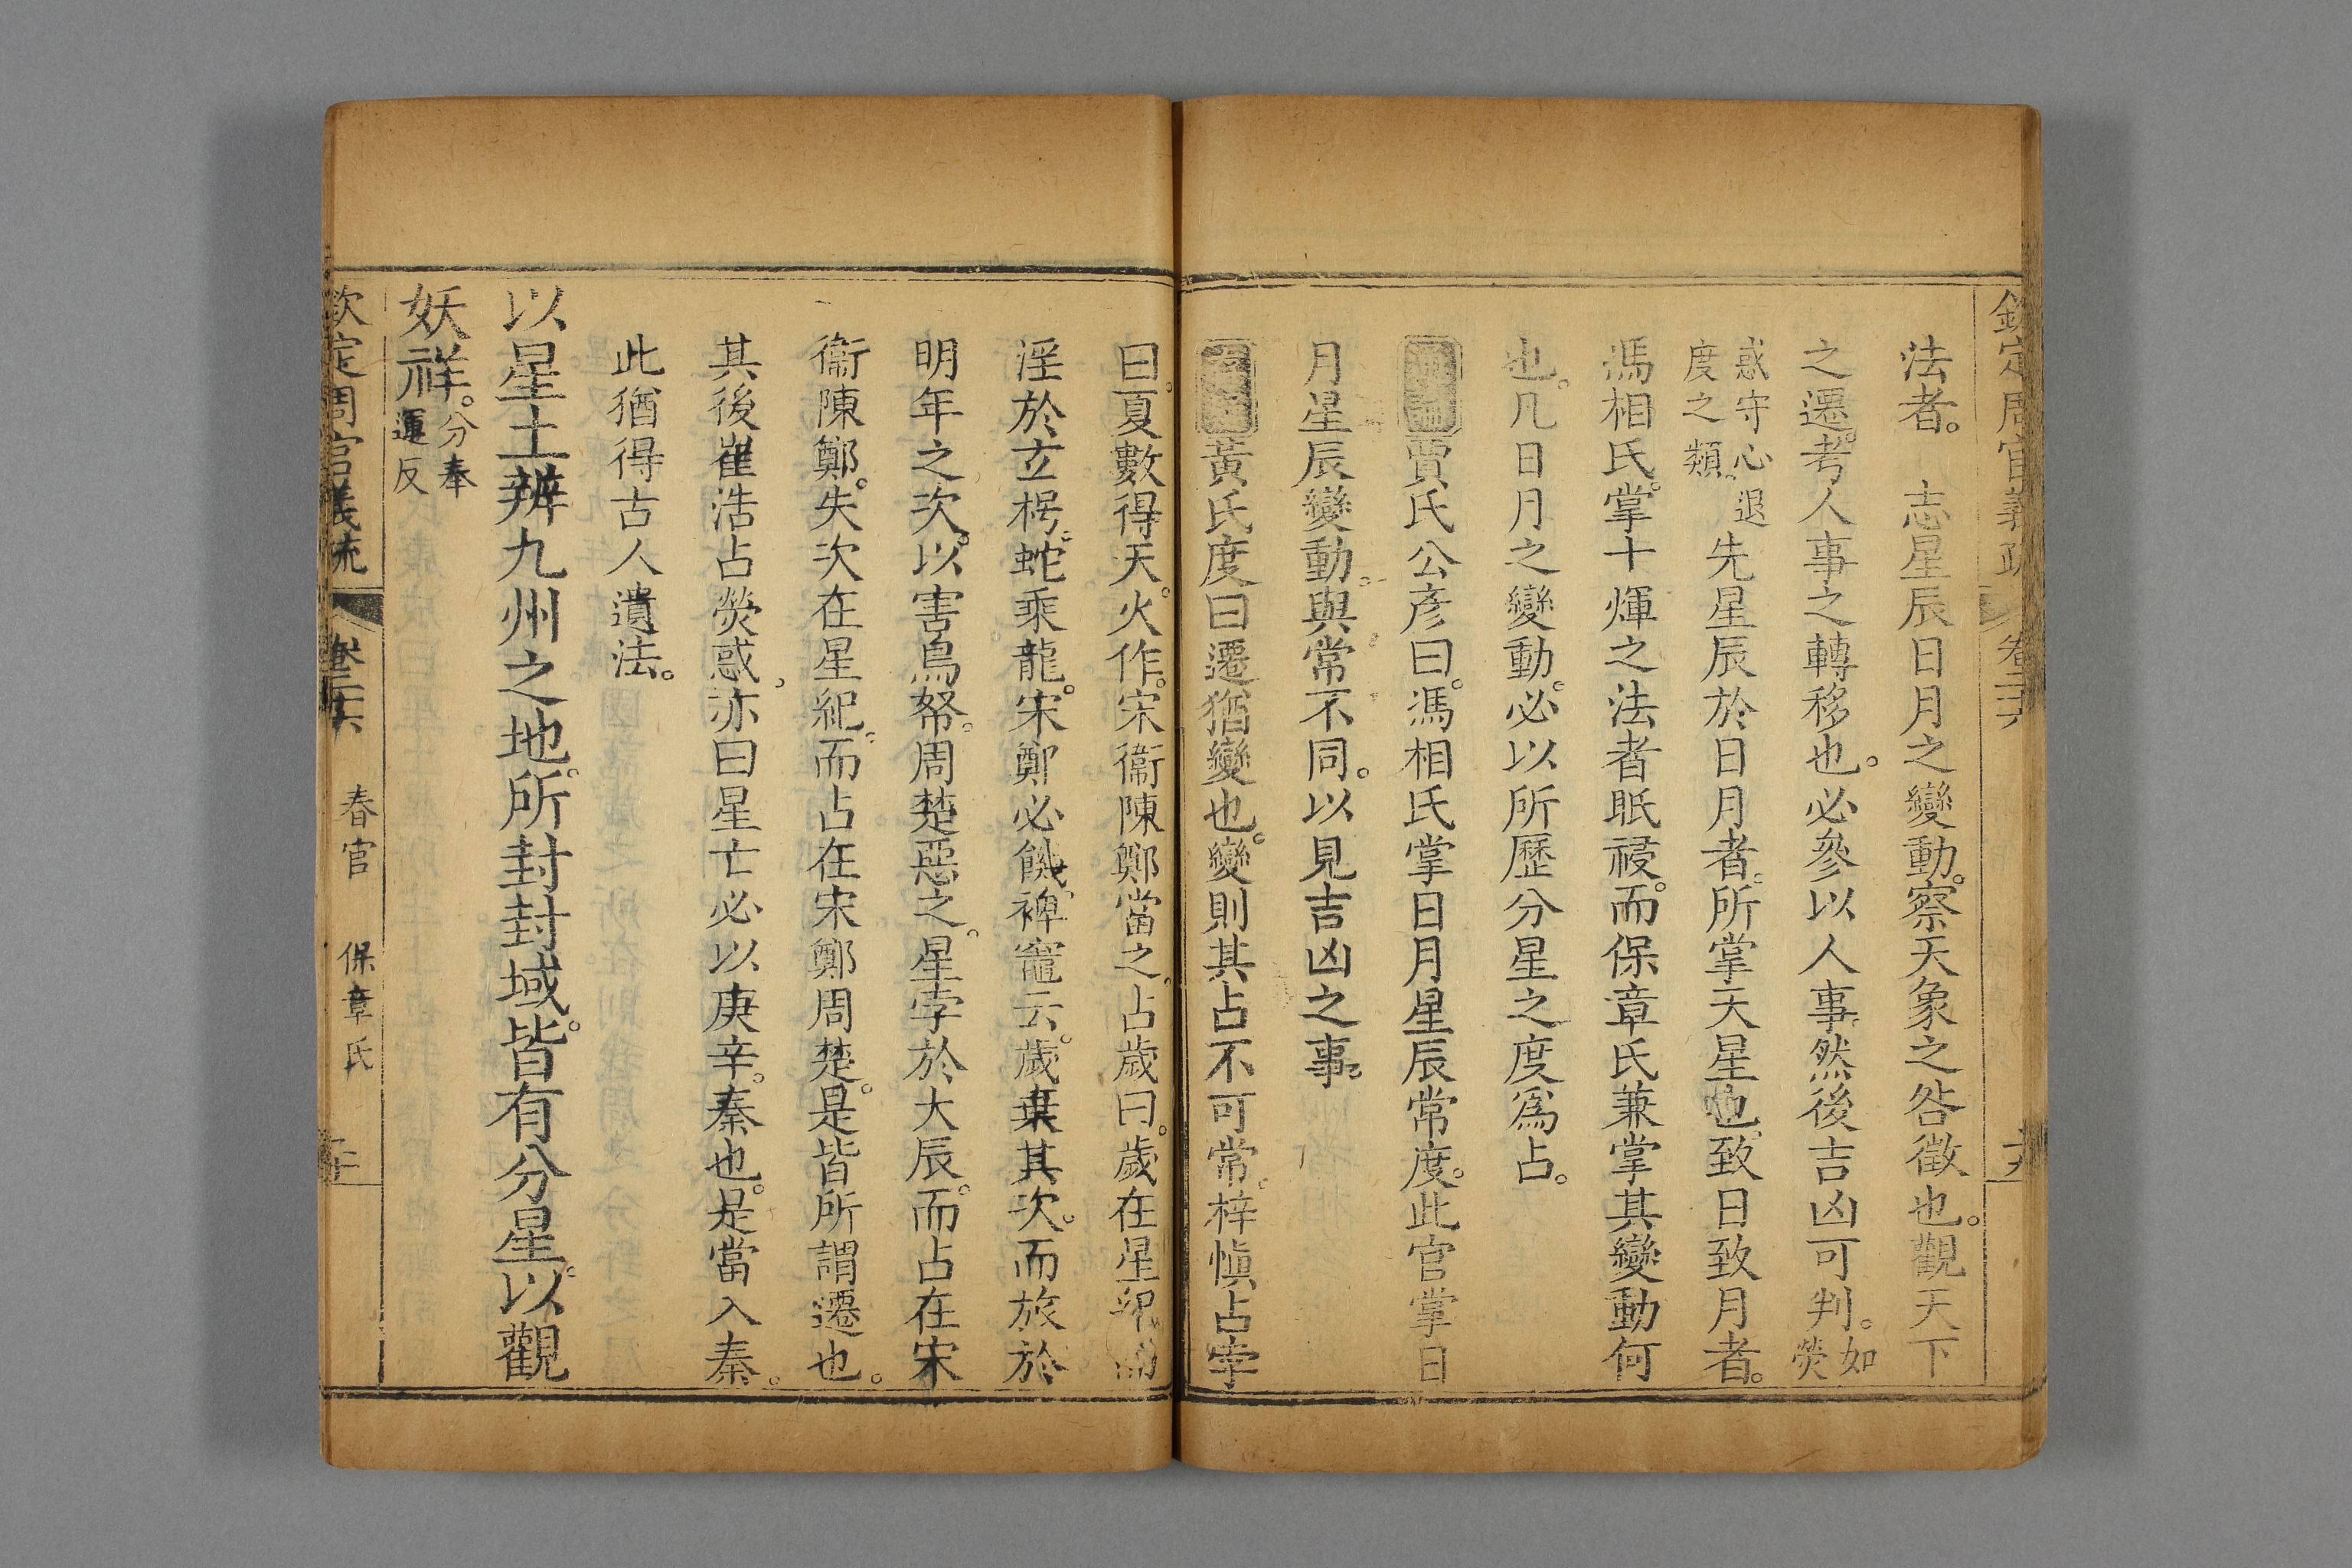 欽定周官義疏 卷二十六
法者。 志星辰日月之變動。察天象之咎徵也。觀天下
之遷。考人事之轉移也。必參以人事。然後吉凶可判。如熒
惑守心退度之類。先星辰於日月者。所掌天星也。致日致月者。
馮相氏。掌十煇之法者眡祲。而保章氏兼掌其變動何
也。凡日月之變動。必以所歷分星之度為占。
賈氏公彦曰。馮相氏掌日月星辰常度。此官掌日
月星辰變動。與常不同。以見吉凶之事。
黃氏度曰遷猶變也。變則其占不可常。梓慎占孛
曰。夏數得天。火作。宋衞陳鄭當之。占歲曰。歲在星紀而
淫於玄枵。蛇乘龍。宋鄭必饑。裨竈云。歲棄其次。而旅於
明年之次。以害鳥帑。周楚惡之。星孛於大辰。而占在宋
衞陳鄭。失次在星紀。而占在宋鄭周楚。是皆所謂遷也。
其後崔浩占熒惑。亦曰星亡必以庚辛。秦也。是當入秦。
此猶得古人遺法。
以星土辨九州之地。所封封域。皆有分星。以觀
妖祥。分奉運反
欽定周官義疏 卷二十六 春官 保章氏